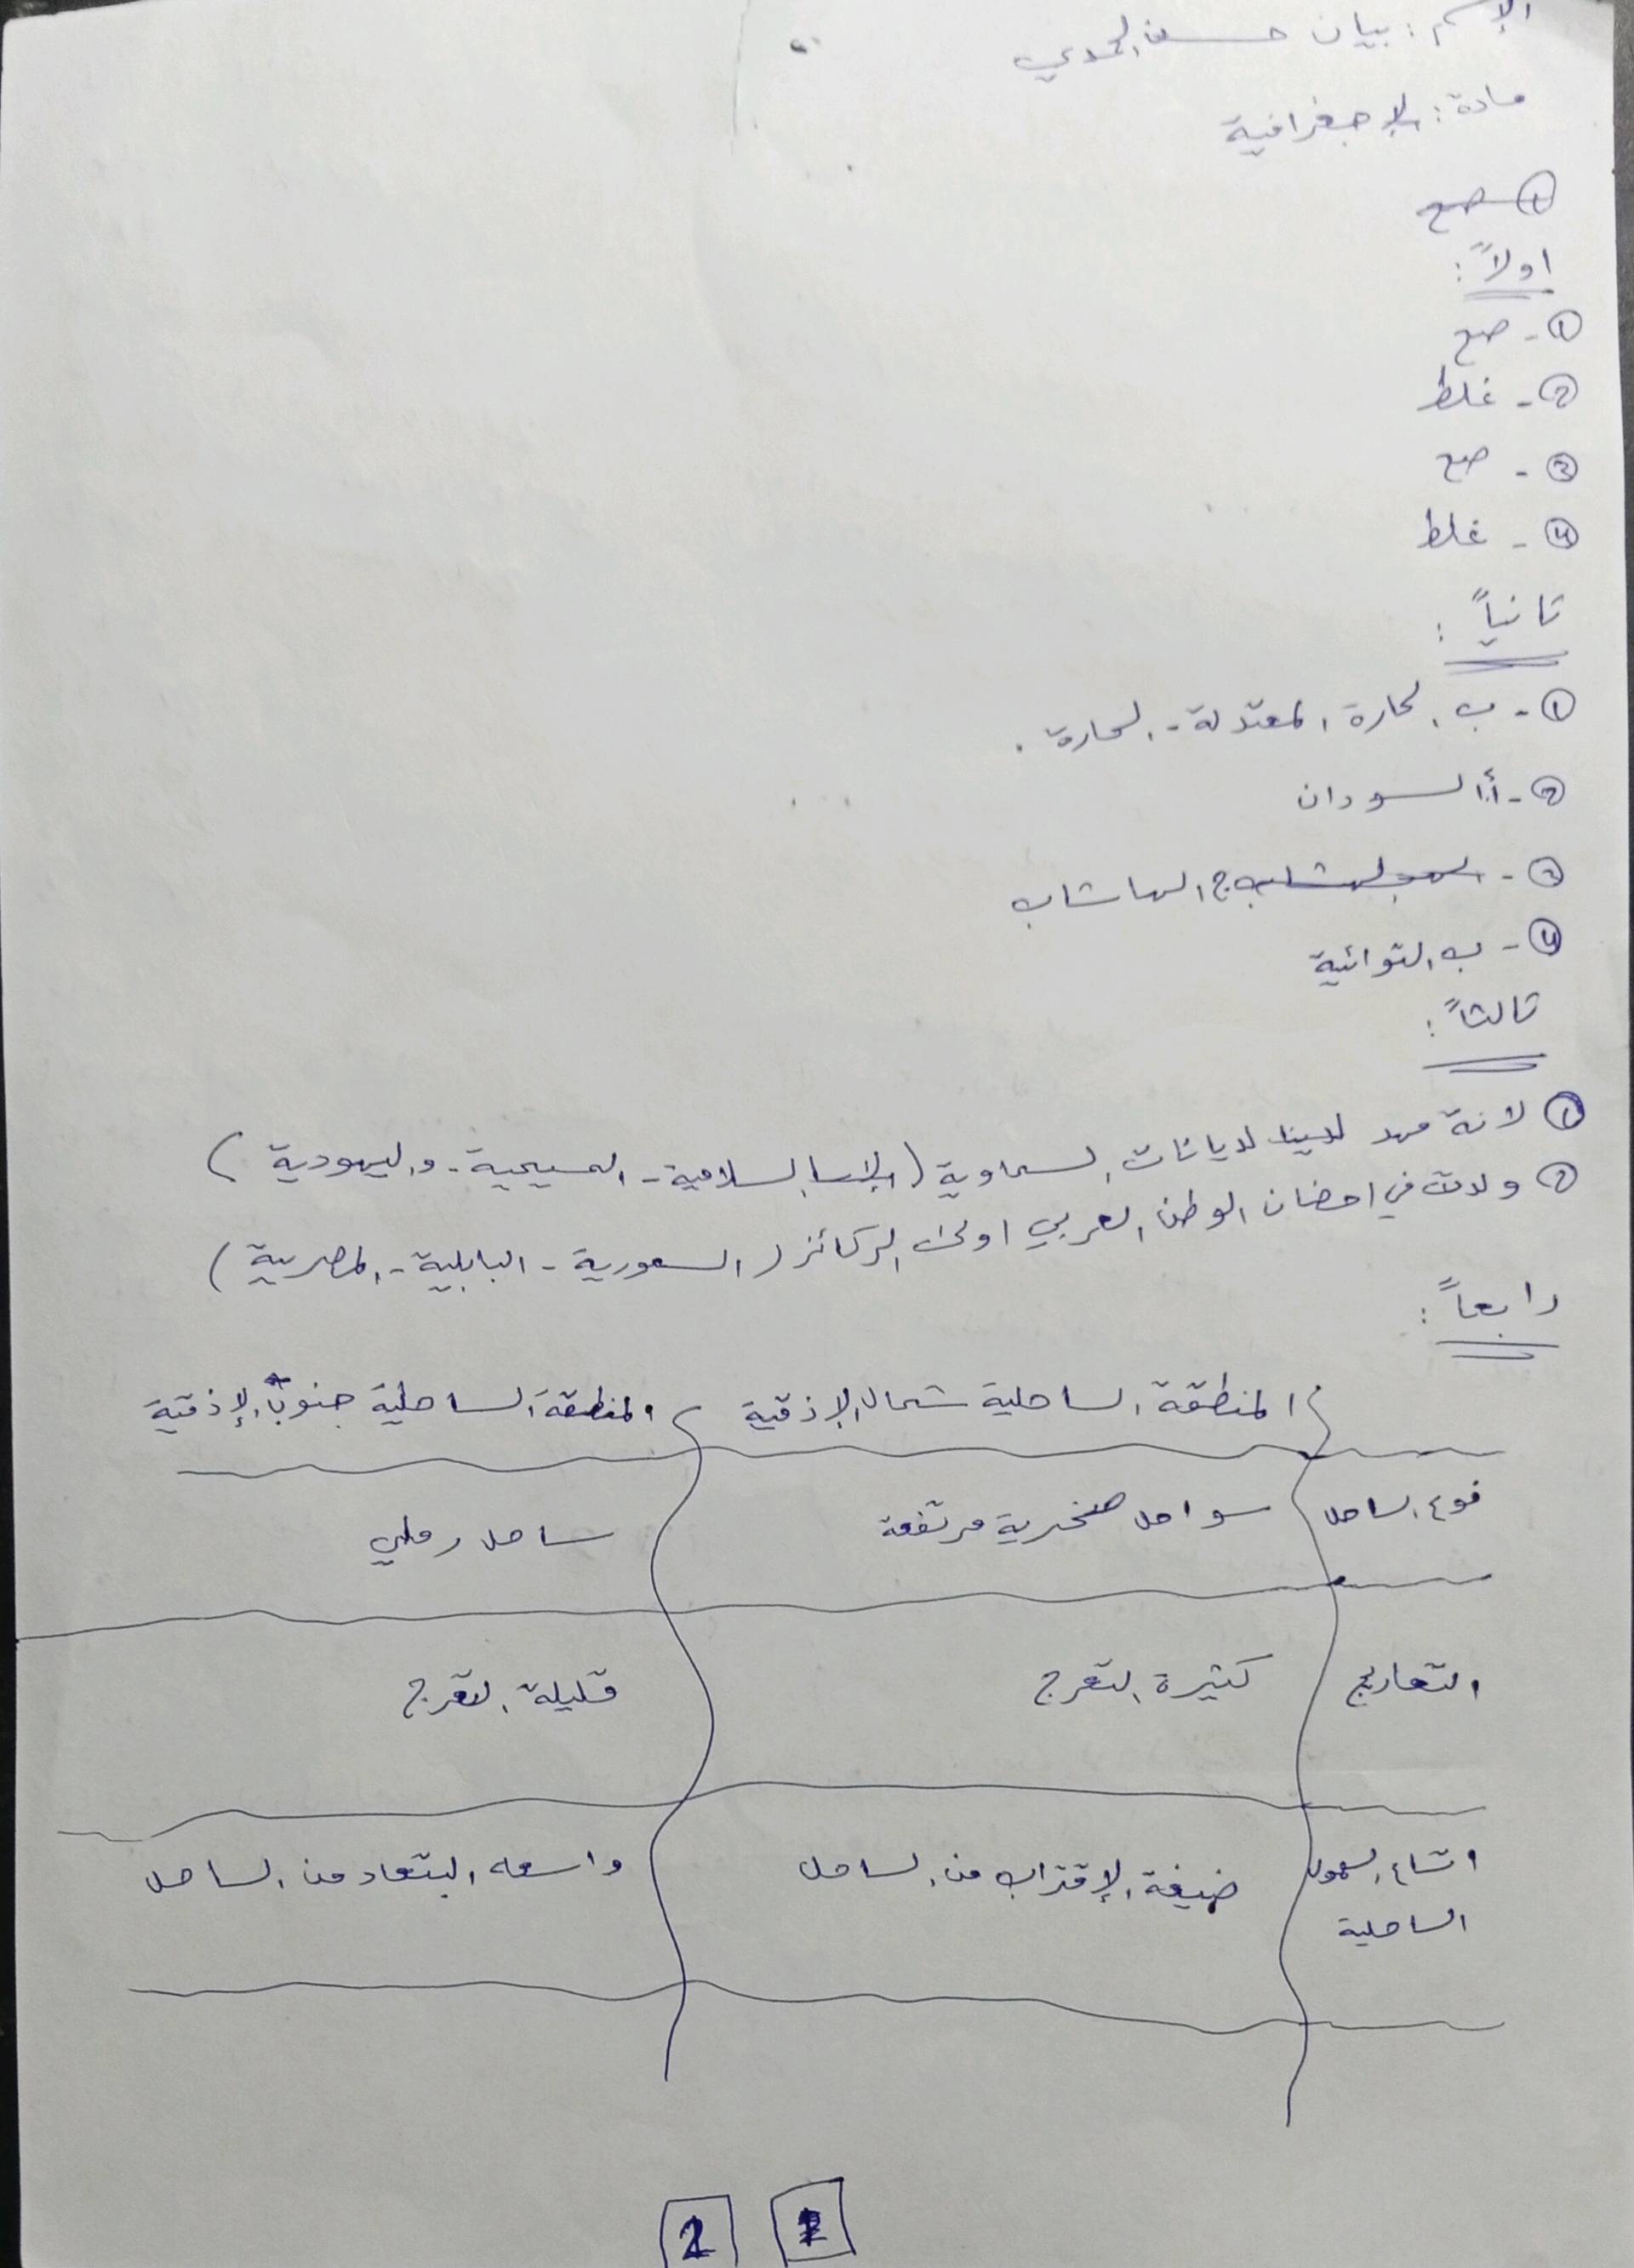 الإسم : بيان حسن الحمدي
مادة : الإجغرافية
① صح
اولاً :
① - صح
② - غلط
③ - صح
④ - غلط
ثانياً :
① - ب الحارة المعتدلة - الحارة .
② - أ السودان
③ - ج الهاشاب
④ - ب التوائية
ثالثاً :
① لانه مهد لديانات السماوية ( الإسلامية - المسيحية - واليهودية )
② ولدت في احضان الوطن العربي اولى الركائز ( السعورية - البابلية - المصرية )
رابعاً :
المنطقة الساحلية شمال الإذقية المنطقة الساحلية جنوب الإذقية
نوع الساحل سواحل صخرية مرتفعة ساحل رملي
التعاريج كثيرة التعرج قليلة التعرج
اتساع السهول ضيفة الإقتراب من الساحل واسعه البتعاد من الساحل
الساحلية
2 1